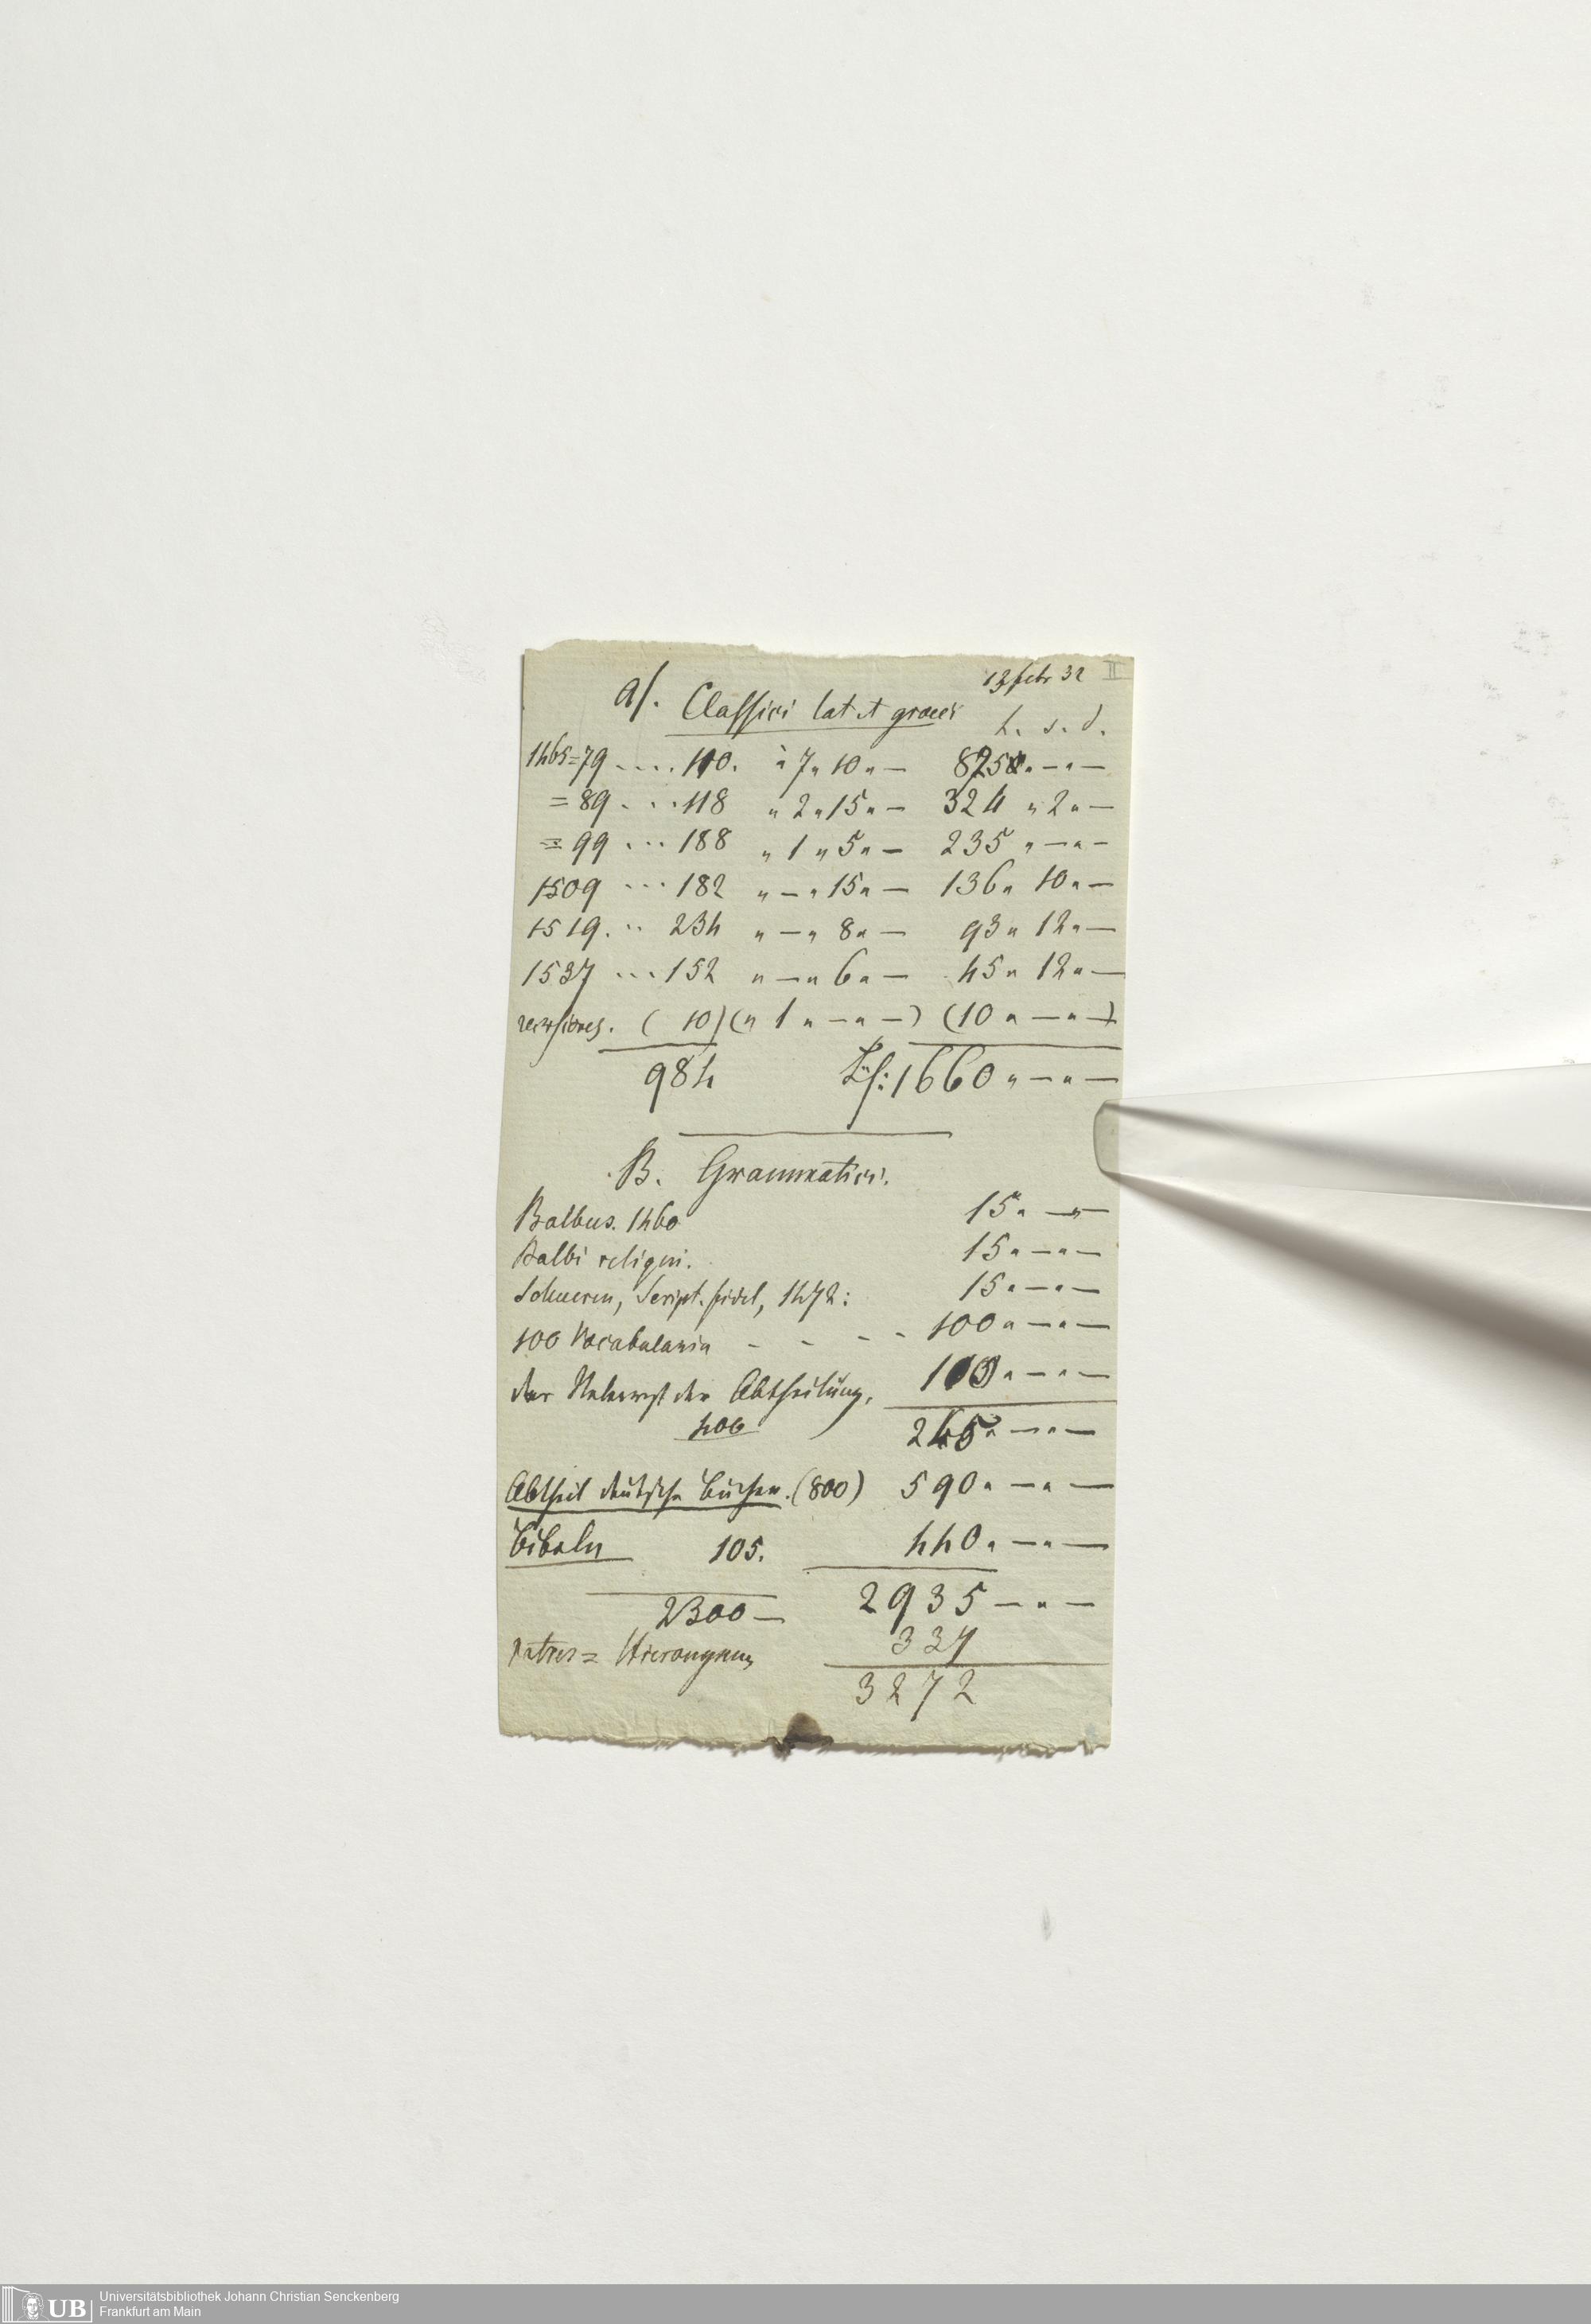 13 febr 32 II
a/. Classici lat et graeci L. s. d.
1465=79 .... 110. à 7 „ 10 „ — 825 „ — „ —
= 89 . . . 118 „ 2 „ 15 „ — 324 „ 2 „ —
= 99 ... 188 „ 1 „ 5 „ — 235 „ — „ —
1509 ... 182 „ — „ 15 „ — 136 „ 10 „ —
1519. .. 234 „ — „ 8 „ — 93 „ 12 „ —
1537 ... 152 „ — „ 6 „ — 45 „ 12 „ —
versiones. ( 10) („ 1 „ — „ —) (10 „ — „ —)
984 1660 „ — „ —
B. Grammatici.
Balbus. 1460 15 „ — „ —
Balbi reliqui. 15 „ — „ —
Schueren, Script. fidel, 1472: 15 „ — „ —
100 Vocabularia - - - - 100 „ — „ —
der Ueberrest der Abtheilung, 100 „ — „ —
400 245 „ — „ —
Abtheil deutscher Bücher. (800) 590 „ — „ —
Bibeln 105. 440 „ — „ —
2300 — 2935 — „ —
Patres = Hieronymus 337
3272
UB Universitätsbibliothek Johann Christian Senckenberg
Frankfurt am Main